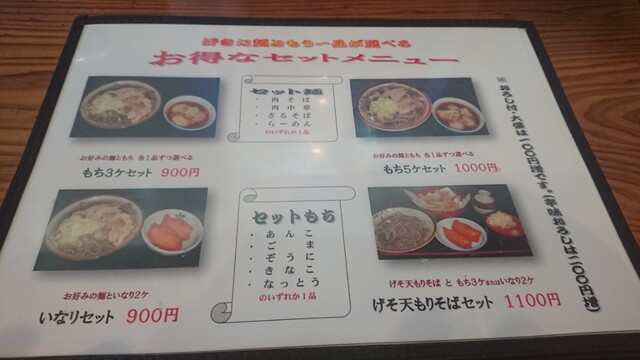 お得なセットメニュー
セット麺
・肉そば
・肉中華
・ざるそば
・らーめん
のいずれか1品
お好みの麺ともち 各1品ずつ選べる
もち3ケセット 900円
お好みの麺ともち 各1品ずつ選べる
もち5ケセット 1000円
セットもち
・あんこ
・ごま
・ぞうに
・きなこ
・なっとう
のいずれか1品
お好みの麺といなり2ケ
いなりセット 900円
げそ天もりそば と もち3ケまたはいなり2ケ
げそ天もりそばセット 1100円
※おろし付・大盛は一〇〇円増です。(辛味おろしは二〇〇円増)